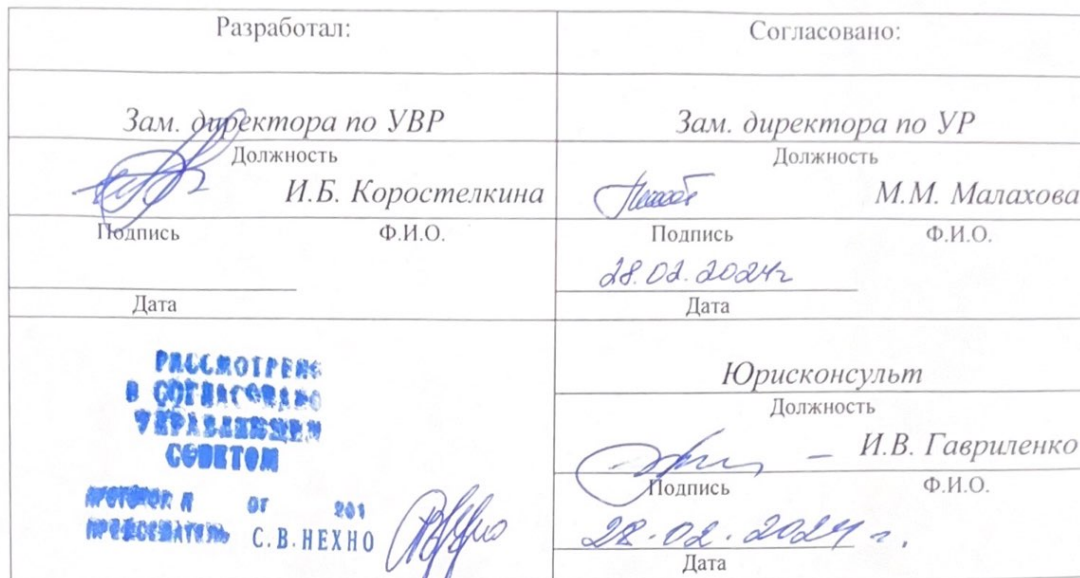 Разработал:
Зам. директора по УВР
Должность
И.Б. Коростелкина
Подпись Ф.И.О.
Дата
РАССМОТРЕНО
И СОГЛАСОВАНО
УПРАВЛЯЮЩИМ
СОВЕТОМ
ПРОТОКОЛ N ОТ 201
ПРЕДСЕДАТЕЛЬ С.В.НЕХНО
Согласовано:
Зам. директора по УР
Должность
М.М. Малахова
Подпись Ф.И.О.
28.02.2024г
Дата
Юрисконсульт
Должность
И.В. Гавриленко
Подпись Ф.И.О.
28.02.2024 г.
Дата